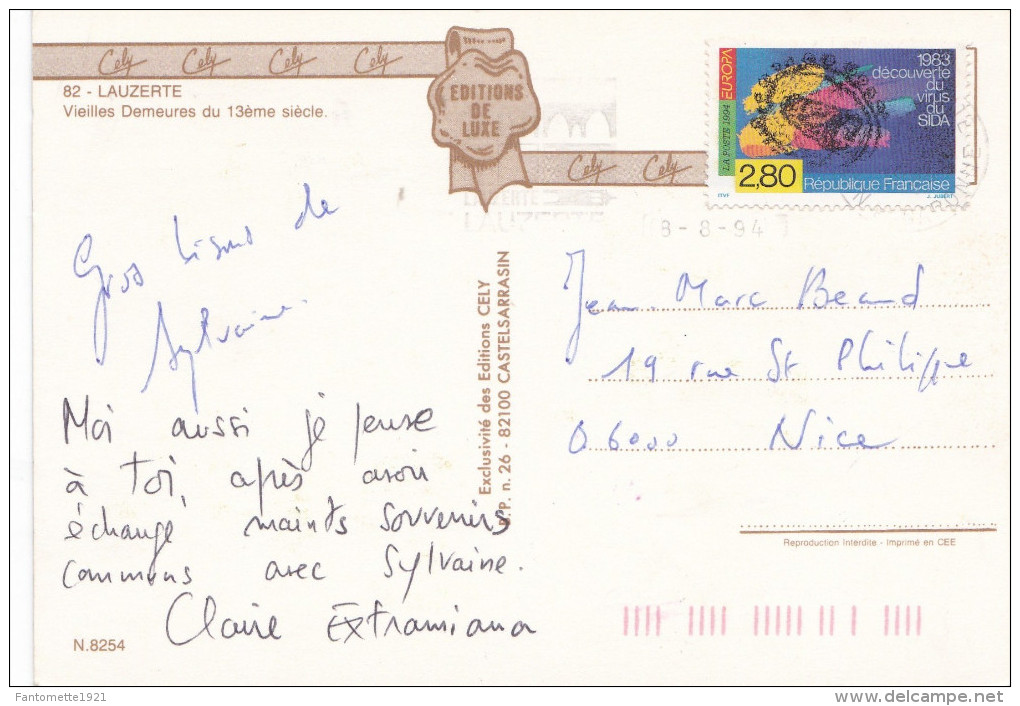 Cely Cely Cely Cely
82 - LAUZERTE
Vieilles Demeures du 13ème siècle.
EDITIONS
DE
LUXE
Cely Cely
EUROPA
LA POSTE 1994
1983
découverte
du
virus
du
SIDA
2,80 République Française
ITVF J. JUBERT
LAUZERTE
8-8-94
Gros bisous de
Sylvaine.
Moi aussi je pense
à toi, après avoir
échangé maints souvenirs
communs avec Sylvaine.
Claire Extramiana
Exclusivité des Editions CELY
B.P. n. 26 - 82100 CASTELSARRASIN
Jean-Marc Beaud
19 rue St Philippe
06000 Nice
Reproduction Interdite - Imprimé en CEE
N.8254
Fantomette1921
delcampe.net